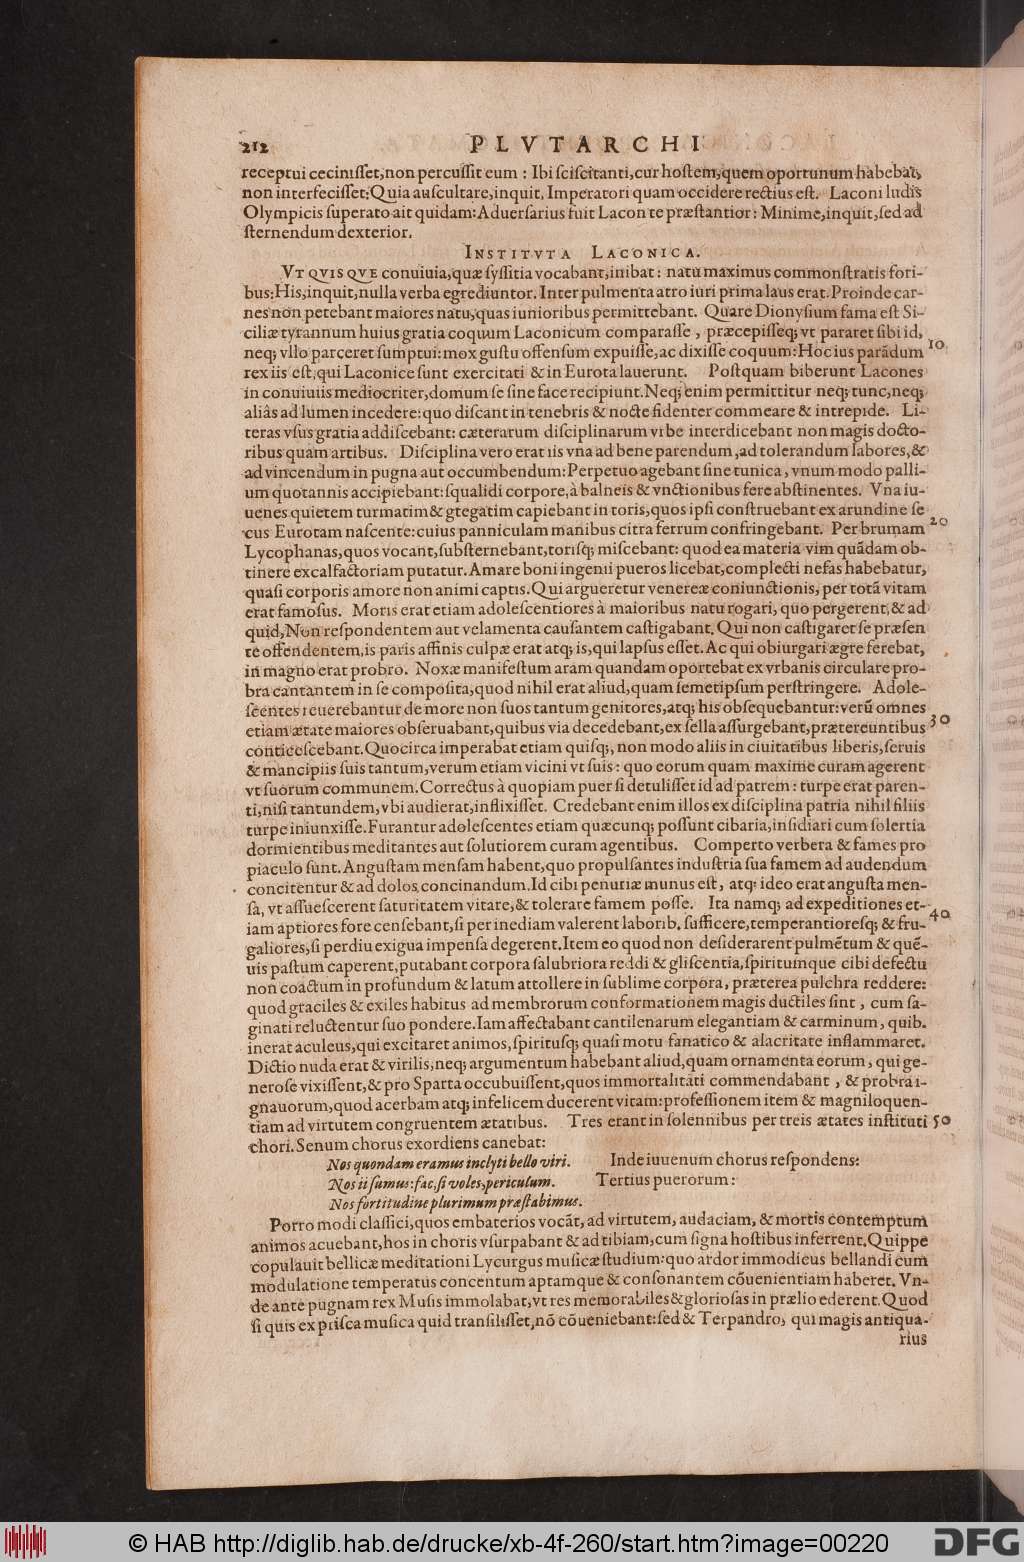 212 PLVTARCHI
receptui cecinisset, non percussit eum: Ibi sciscitanti, cur hostem, quem oportunum habebat,
non interfecisset: Quia auscultare, inquit, Imperatori quam occidere rectius est. Laconi ludis
Olympicis superato ait quidam: Aduersarius fuit Lacon te præstantior: Minime, inquit, sed ad
sternendum dexterior.
INSTITVTA LACONICA.
VT QVISQVE conuiuia, quæ syssitia vocabant, inibat: natu maximus commonstratis fori-
bus: His, inquit, nulla verba egrediuntor. Inter pulmenta atro iuri prima laus erat. Proinde car-
nes non petebant maiores natu, quas iunioribus permittebant. Quare Dionysium fama est Si-
ciliæ tyrannum huius gratia coquum Laconicum comparasse, præcepisseq; vt pararet sibi id,
neq; vllo parceret sumptui: mox gustu offensum expuisse, ac dixisse coquum: Hoc ius parādum 10
rex iis est, qui Laconice sunt exercitati & in Eurota lauerunt. Postquam biberunt Lacones
in conuiuiis mediocriter, domum se sine face recipiunt. Neq; enim permittitur neq; tunc, neq;
aliâs ad lumen incedere: quo discant in tenebris & nocte fidenter commeare & intrepide. Li-
teras vsus gratia addiscebant: cæterarum disciplinarum vrbe interdicebant non magis docto-
ribus quam artibus. Disciplina vero erat iis vna ad bene parendum, ad tolerandum labores, &
ad vincendum in pugna aut occumbendum: Perpetuo agebant sine tunica, vnum modo palli-
um quotannis accipiebant: squalidi corpore, à balneis & vnctionibus fere abstinentes. Vna iu-
uenes quietem turmatim & gtegatim capiebant in toris, quos ipsi construebant ex arundine se
cus Eurotam nascente: cuius panniculam manibus citra ferrum confringebant. Per brumam 20
Lycophanas, quos vocant, substernebant, torisq; miscebant: quod ea materia vim quādam ob-
tinere excalfactoriam putatur. Amare boni ingenii pueros licebat, complecti nefas habebatur,
quasi corporis amore non animi captis. Qui argueretur venereæ coniunctionis, per totā vitam
erat famosus. Moris erat etiam adolescentiores à maioribus natu rogari, quo pergerent, & ad
quid, Non respondentem aut velamenta causantem castigabant. Qui non castigaret se præsen
te offendentem, is paris affinis culpæ erat atq; is, qui lapsus esset. Ac qui obiurgari ægre ferebat,
in magno erat probro. Noxæ manifestum aram quandam oportebat ex vrbanis circulare pro-
bra cantantem in se composita, quod nihil erat aliud, quam semetipsum perstringere. Adole-
scentes reuerebantur de more non suos tantum genitores, atq; his obsequebantur: verū omnes
etiam ætate maiores obseruabant, quibus via decedebant, ex sella assurgebant, prætereuntibus 30
conticescebant. Quocirca imperabat etiam quisq;, non modo aliis in ciuitatibus liberis, seruis
& mancipiis suis tantum, verum etiam vicini vt suis: quo eorum quam maxime curam agerent
vt suorum communem. Correctus à quopiam puer si detulisset id ad patrem: turpe erat paren-
ti, nisi tantundem, vbi audierat, inflixisset. Credebant enim illos ex disciplina patria nihil filiis
turpe iniunxisse. Furantur adolescentes etiam quæcunq; possunt cibaria, insidiari cum solertia
dormientibus meditantes aut solutiorem curam agentibus. Comperto verbera & fames pro
piaculo sunt. Angustam mensam habent, quo propulsantes industria sua famem ad audendum
concitentur & ad dolos concinandum. Id cibi penuriæ munus est, atq; ideo erat angusta men-
sa, vt assuescerent saturitatem vitare, & tolerare famem posse. Ita namq; ad expeditiones et-
iam aptiores fore censebant, si per inediam valerent laborib. sufficere, temperantioresq; & fru- 40
galiores, si perdiu exigua impensa degerent. Item eo quod non desiderarent pulmētum & quē-
uis pastum caperent, putabant corpora salubriora reddi & gliscentia, spiritumque cibi defectu
non coactum in profundum & latum attollere in sublime corpora, præterea pulchra reddere:
quod graciles & exiles habitus ad membrorum conformationem magis ductiles sint, cum sa-
ginati reluctentur suo pondere. Iam affectabant cantilenarum elegantiam & carminum, quib.
inerat aculeus, qui excitaret animos, spiritusq; quasi motu fanatico & alacritate inflammaret.
Dictio nuda erat & virilis, neq; argumentum habebant aliud, quam ornamenta eorum, qui ge-
nerose vixissent, & pro Sparta occubuissent, quos immortalitati commendabant, & probra i-
gnauorum, quod acerbam atq; infelicem ducerent vitam: professionem item & magniloquen-
tiam ad virtutem congruentem ætatibus. Tres erant in solennibus per treis ætates instituti 50
chori. Senum chorus exordiens canebat:
Nos quondam eramus inclyti bello viri. Inde iuuenum chorus respondens:
Nos ii sumus: fac, si voles, periculum. Tertius puerorum:
Nos fortitudine plurimum præstabimus.
Porro modi classici, quos embaterios vocāt, ad virtutem, audaciam, & mortis contemptum
animos acuebant, hos in choris vsurpabant & ad tibiam, cum signa hostibus inferrent. Quippe
copulauit bellicæ meditationi Lycurgus musicæ studium: quo ardor immodicus bellandi cum
modulatione temperatus concentum aptamque & consonantem cōuenientiam haberet. Vn-
de ante pugnam rex Musis immolabat, vt res memorabiles & gloriosas in prælio ederent. Quod
si quis ex prisca musica quid transilisset, nō cōueniebant: sed & Terpandro, qui magis antiqua-
rius
© HAB http://diglib.hab.de/drucke/xb-4f-260/start.htm?image=00220 DFG